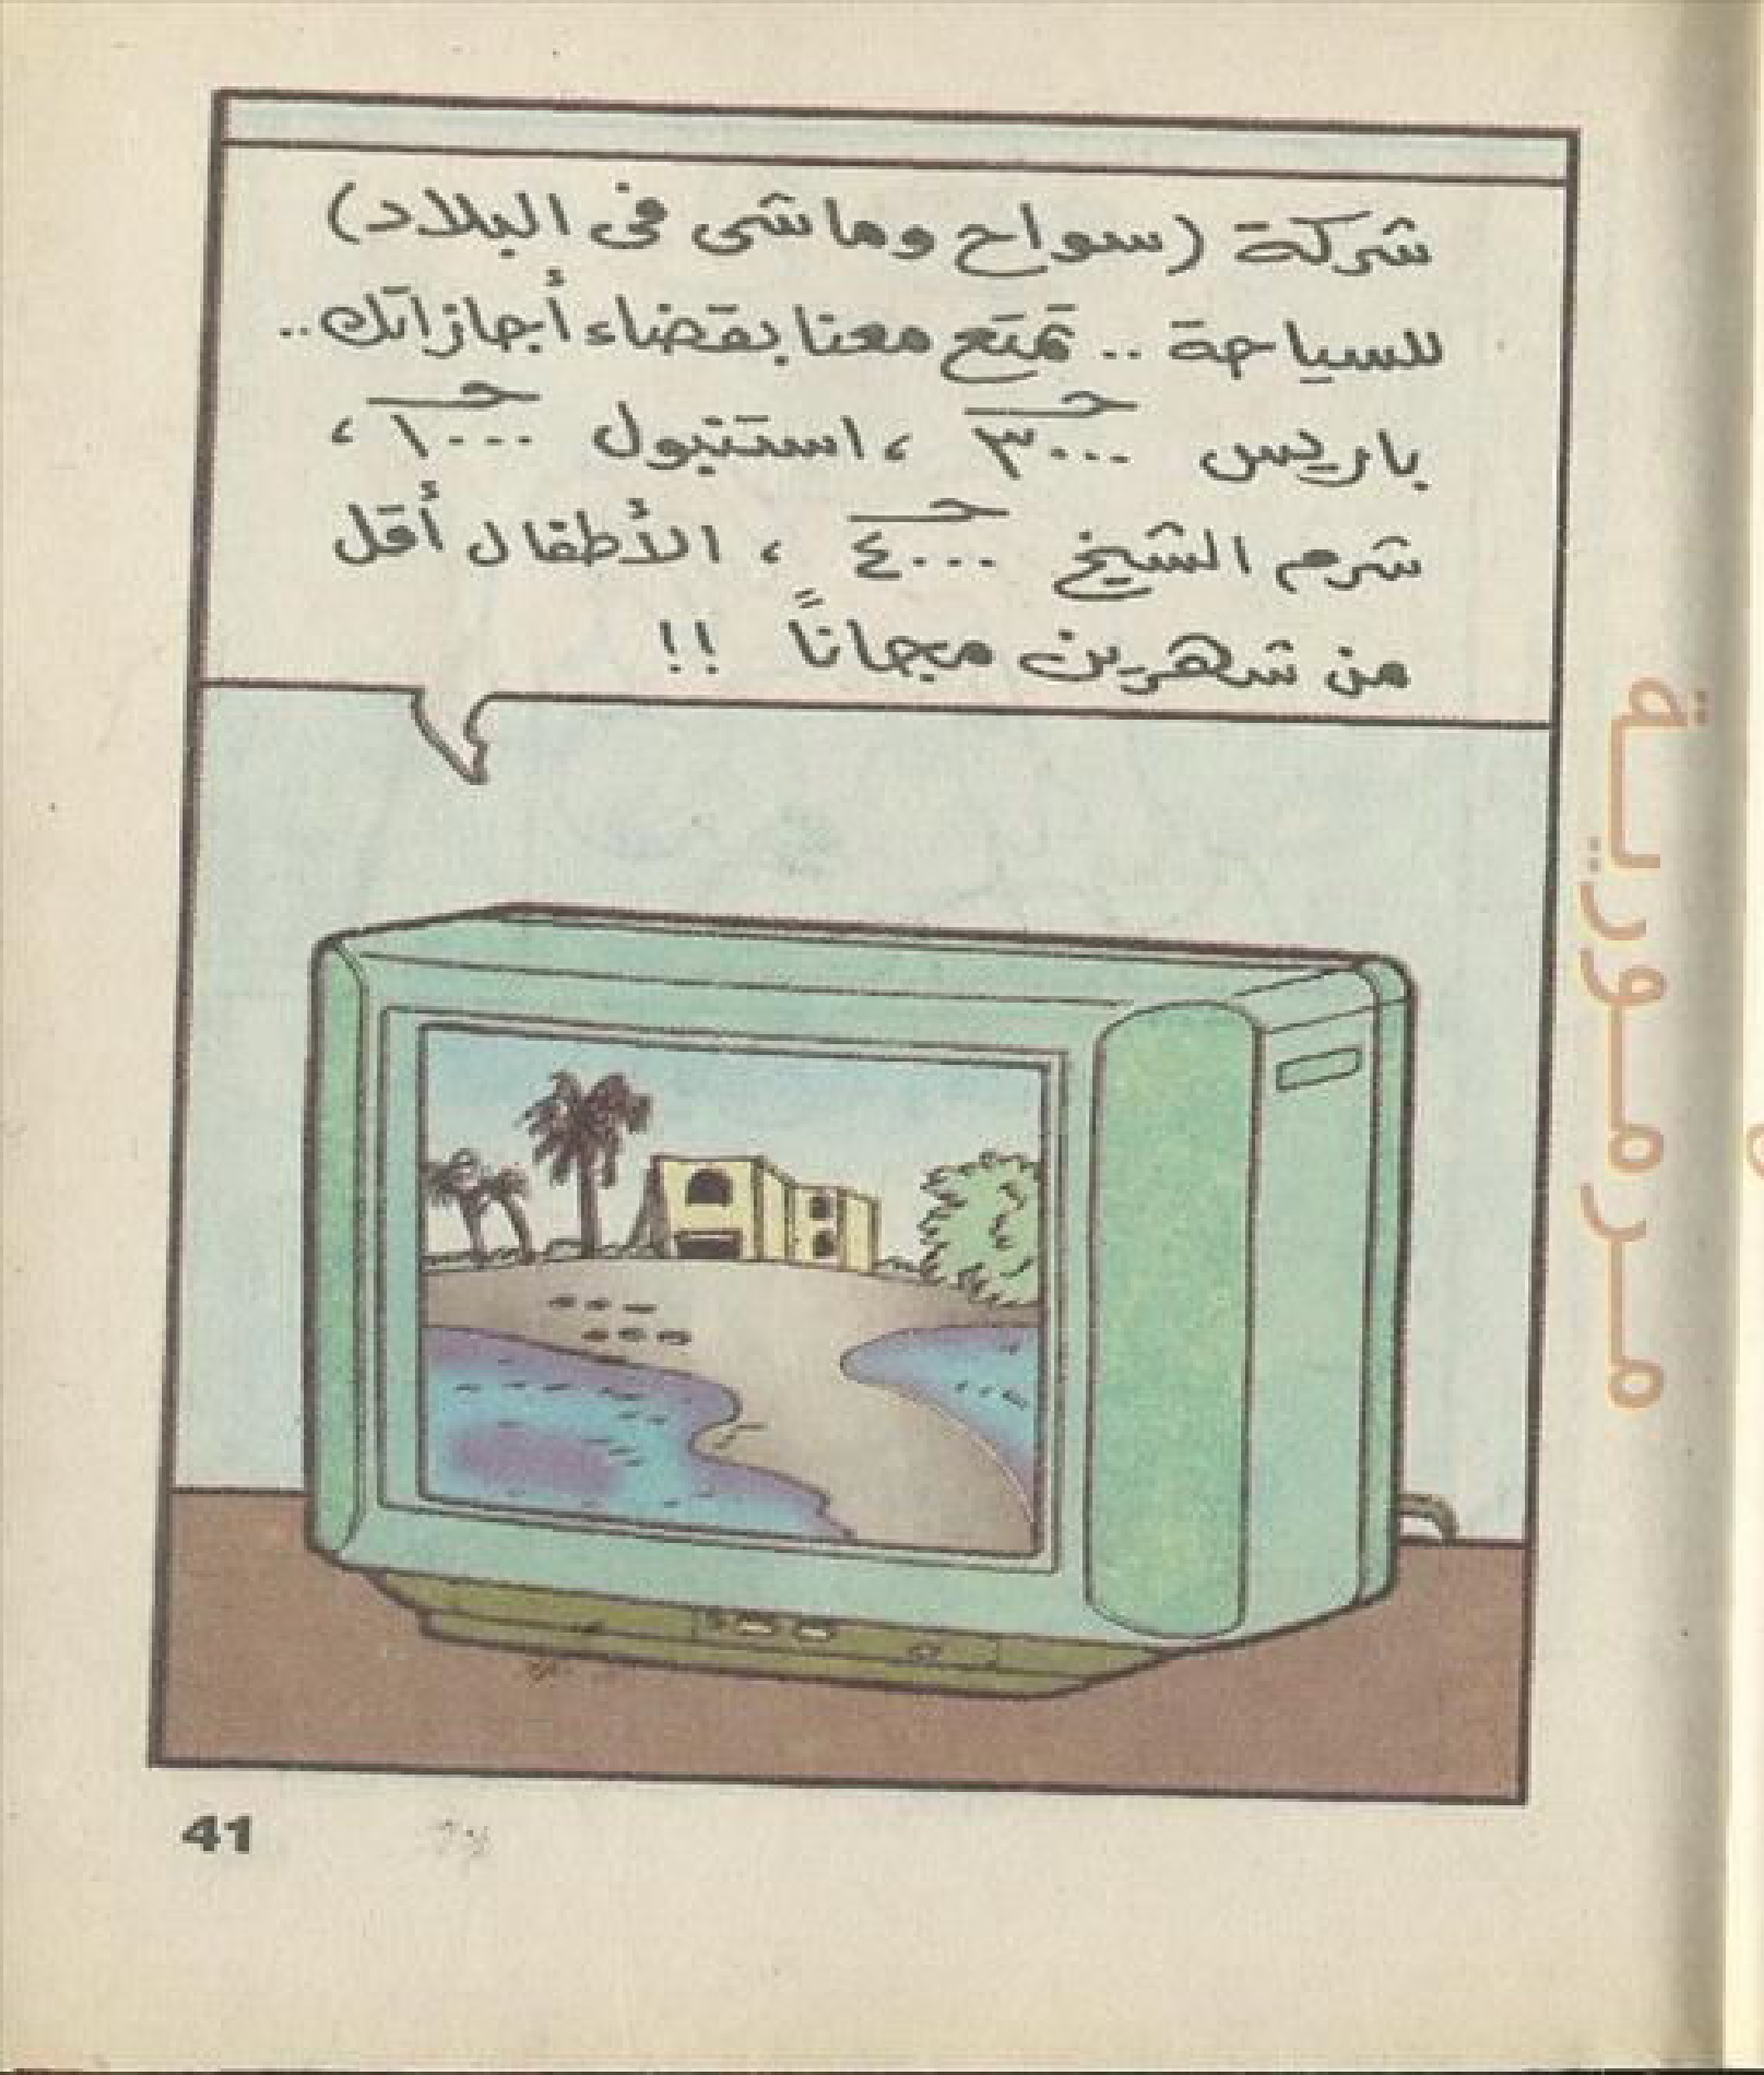 شركة (سواح وماشى فى البلاد)
للسياحة .. تمتع معنا بقضاء أجازاتك ..
باريس ٣٠٠٠ جـ ، استنبول ١٠٠٠ جـ ،
شرم الشيخ ٤٠٠٠ جـ ، الأطفال أقل
من شهرين مجاناً !!
مرمورية
41